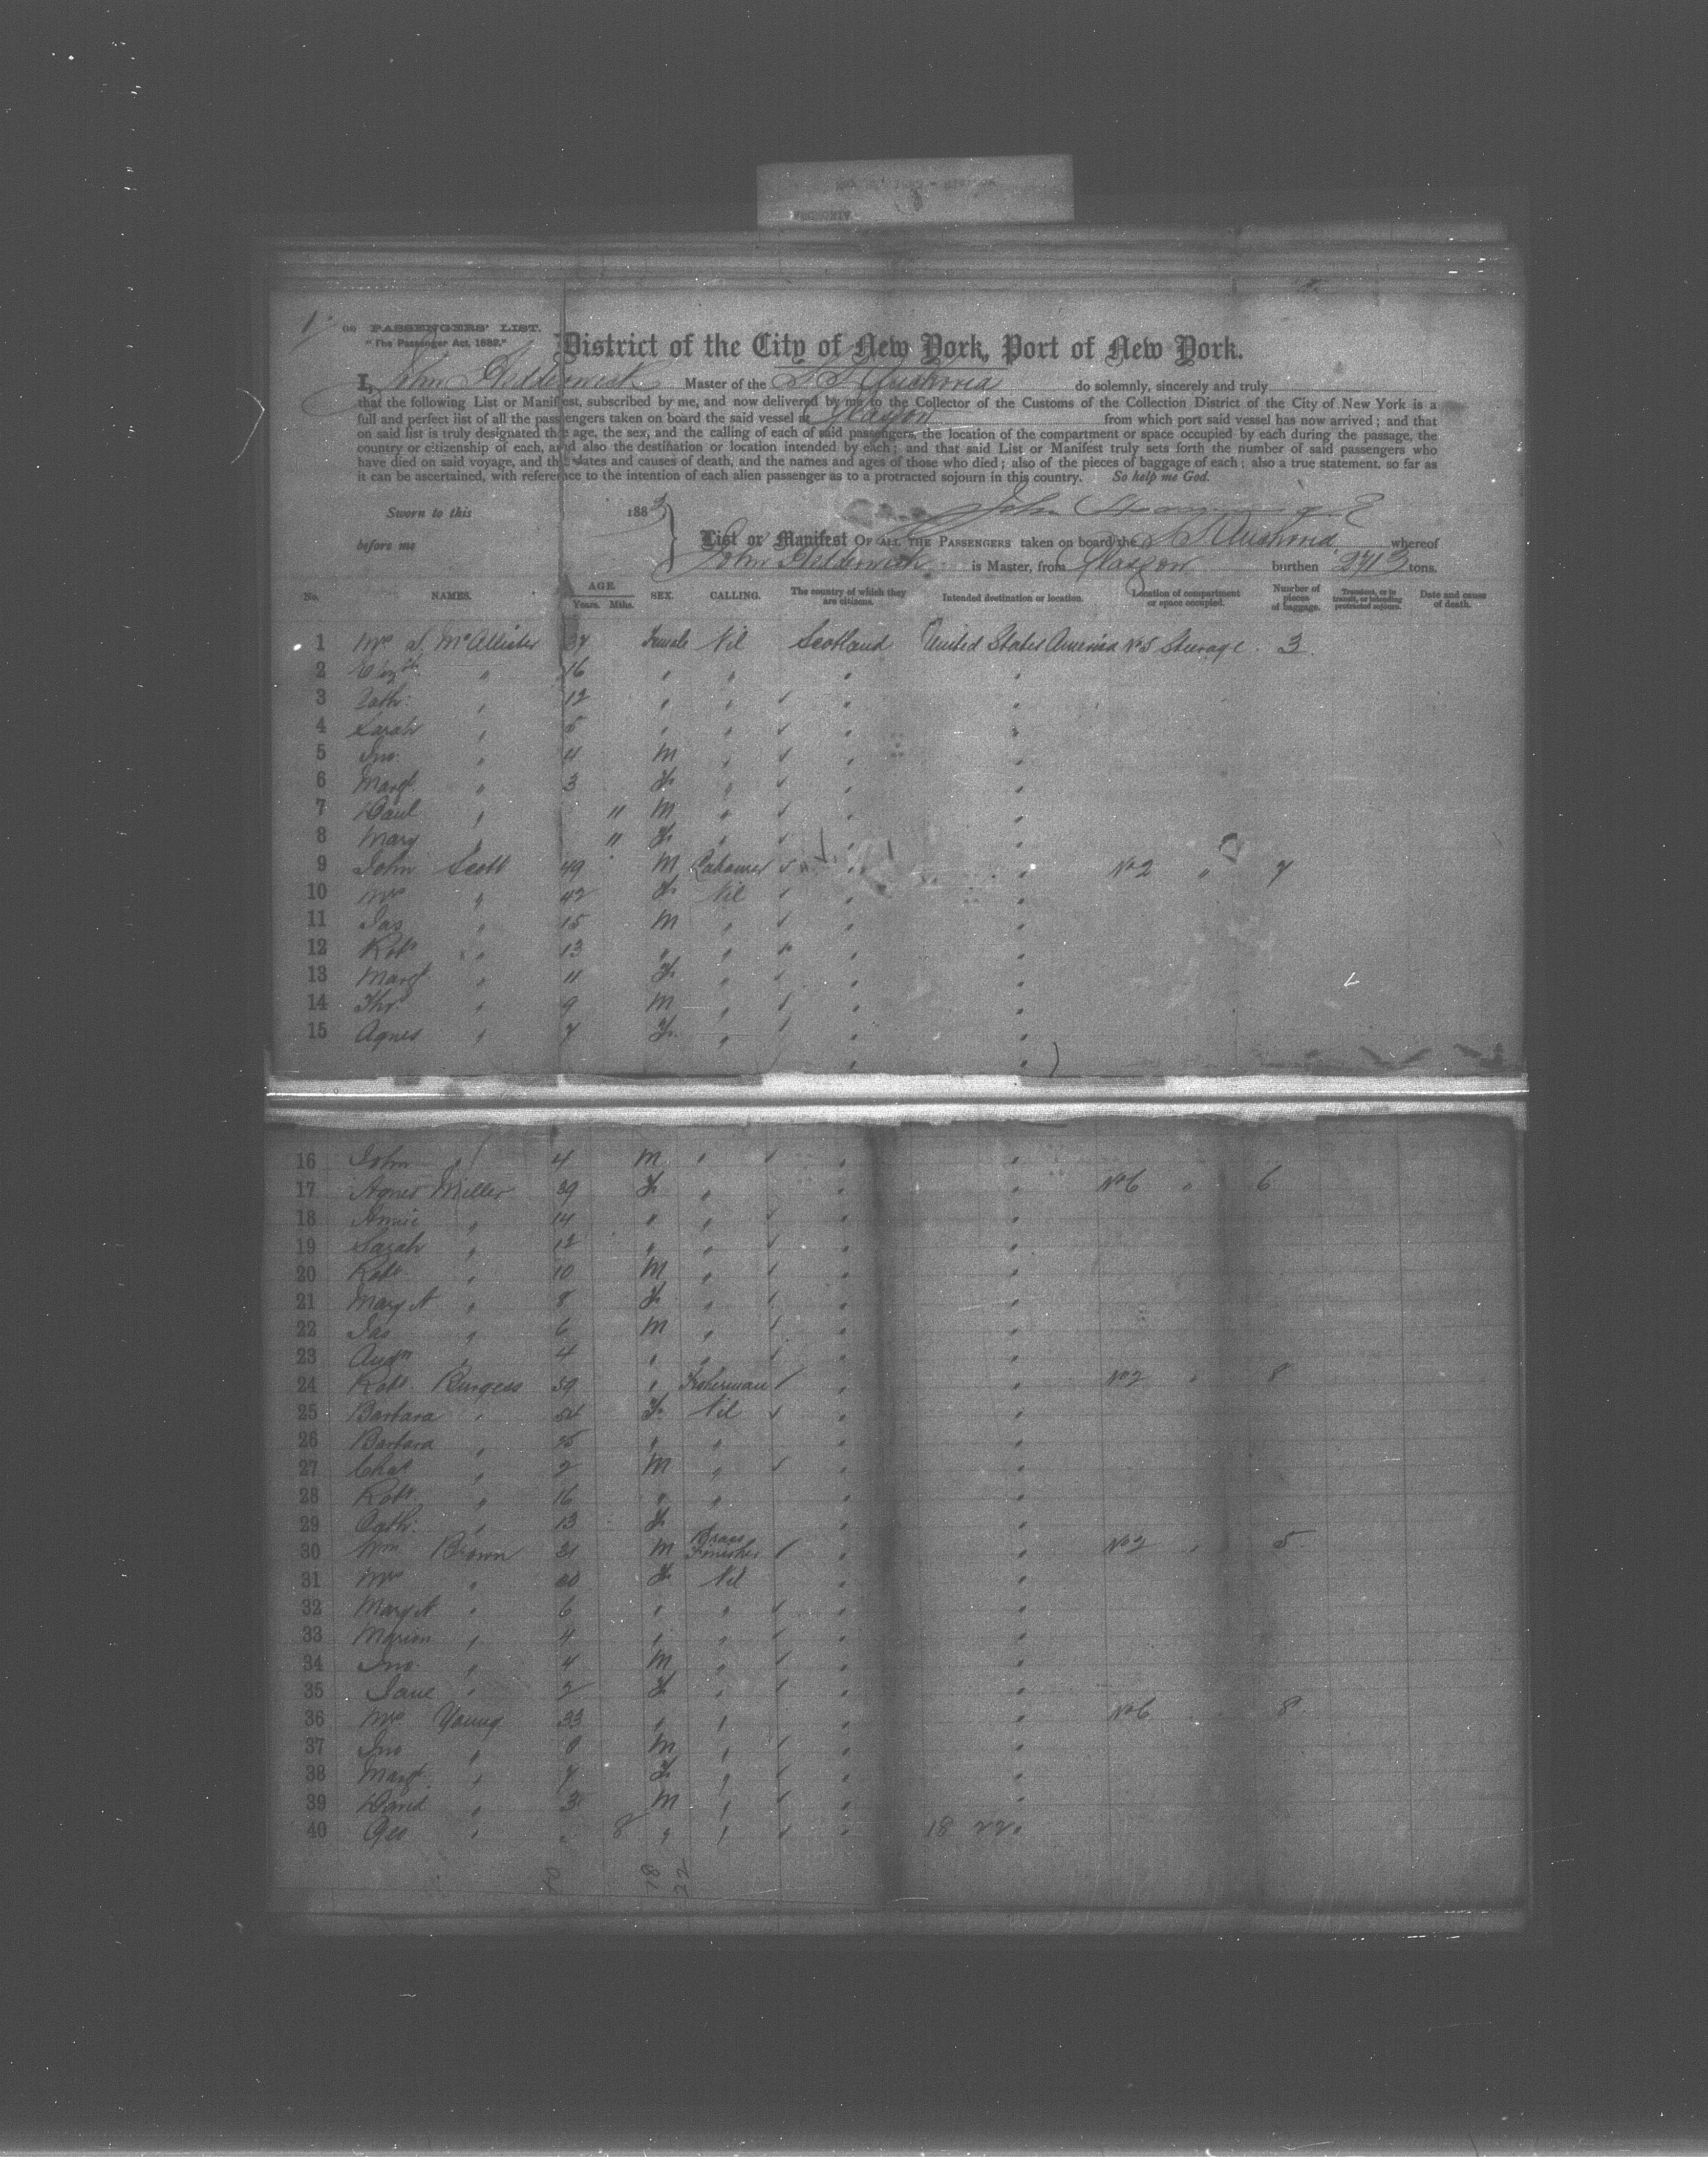 1
OR PASSENGERS' LIST.
"The Passenger Act, 1882."
District of the City of New York, Port of New York.
I, John Hedderwick Master of the S. S. do solemnly, sincerely and truly
that the following List or Manifest, subscribed by me, and now delivered by me to the Collector of the Customs of the Collection District of the City of New York is a
full and perfect list of all the passengers taken on board the said vessel at Glasgow from which port said vessel has now arrived; and that
on said list is truly designated the age, the sex, and the calling of each of said passengers, the location of the compartment or space occupied by each during the passage, the
country or citizenship of each, and also the destination or location intended by each; and that said List or Manifest truly sets forth the number of said passengers who
have died on said voyage, and the dates and causes of death, and the names and ages of those who died; also of the pieces of baggage of each; also a true statement, so far as
it can be ascertained, with reference to the intention of each alien passenger as to a protracted sojourn in this country. So help me God.
Sworn to this 1883
before me
List or Manifest OF ALL THE PASSENGERS taken on board the S S whereof
John Hedderwick is Master, from Glasgow burthen 2713 tons.
No. NAMES. AGE. Years. Mths. SEX. CALLING. The country of which they are citizens. Intended destination or location. Location of compartment or space occupied. Number of pieces of baggage. Transient, or in transit, or intending protracted sojourn. Date and cause of death.
1 Mrs S. McAllister 37 Female Nil Scotland United States America No 5 Steerage 3
2 Elizth " 16 " " " "
3 Cath: " 12 " " " "
4 Sarah " 5 " " " "
5 Jno. " 4 M " " "
6 Margt " 3 F " " "
7 Paul " 11 M " " "
8 Mary " 11 F " " "
9 John Scott 49 M Labourer " " No 2 " 7
10 Mrs " 42 F Nil " "
11 Jas " 15 M " " "
12 Robt " 13 " " " "
13 Margt " 11 F " " "
14 Thos " 9 M " " "
15 Agnes " 7 F " " "
16 John " 4 M " " "
17 Agnes Miller 39 F " " " No 6 " 6
18 Annie " 14 " " " "
19 Sarah " 12 " " " "
20 Robt " 10 M " " "
21 Margt " 8 F " " "
22 Jas " 6 M " " "
23 Andw " 4 " " " "
24 Robt. Burgess 59 " Fisherman " " No 2 " 8
25 Barbara " 54 F Nil " "
26 Barbara " 25 " " " "
27 Chas " 2 M " " "
28 Robt " 16 " " " "
29 Cath: " 13 F " "
30 Wm Brown 31 M Brass Finisher " " No 2 " 5
31 Mrs " 30 F Nil " "
32 Margt " 6 " " " "
33 Marion " 4 " " " "
34 Jno. " 4 M " " "
35 Jane " 2 F " " "
36 Mrs Young 33 " " " " No 6 " 8
37 Jno " 8 M " " "
38 Margt " 7 F " " "
39 David " 3 M " " "
40 Geo " " 8 " " " 18 22 "
18
22